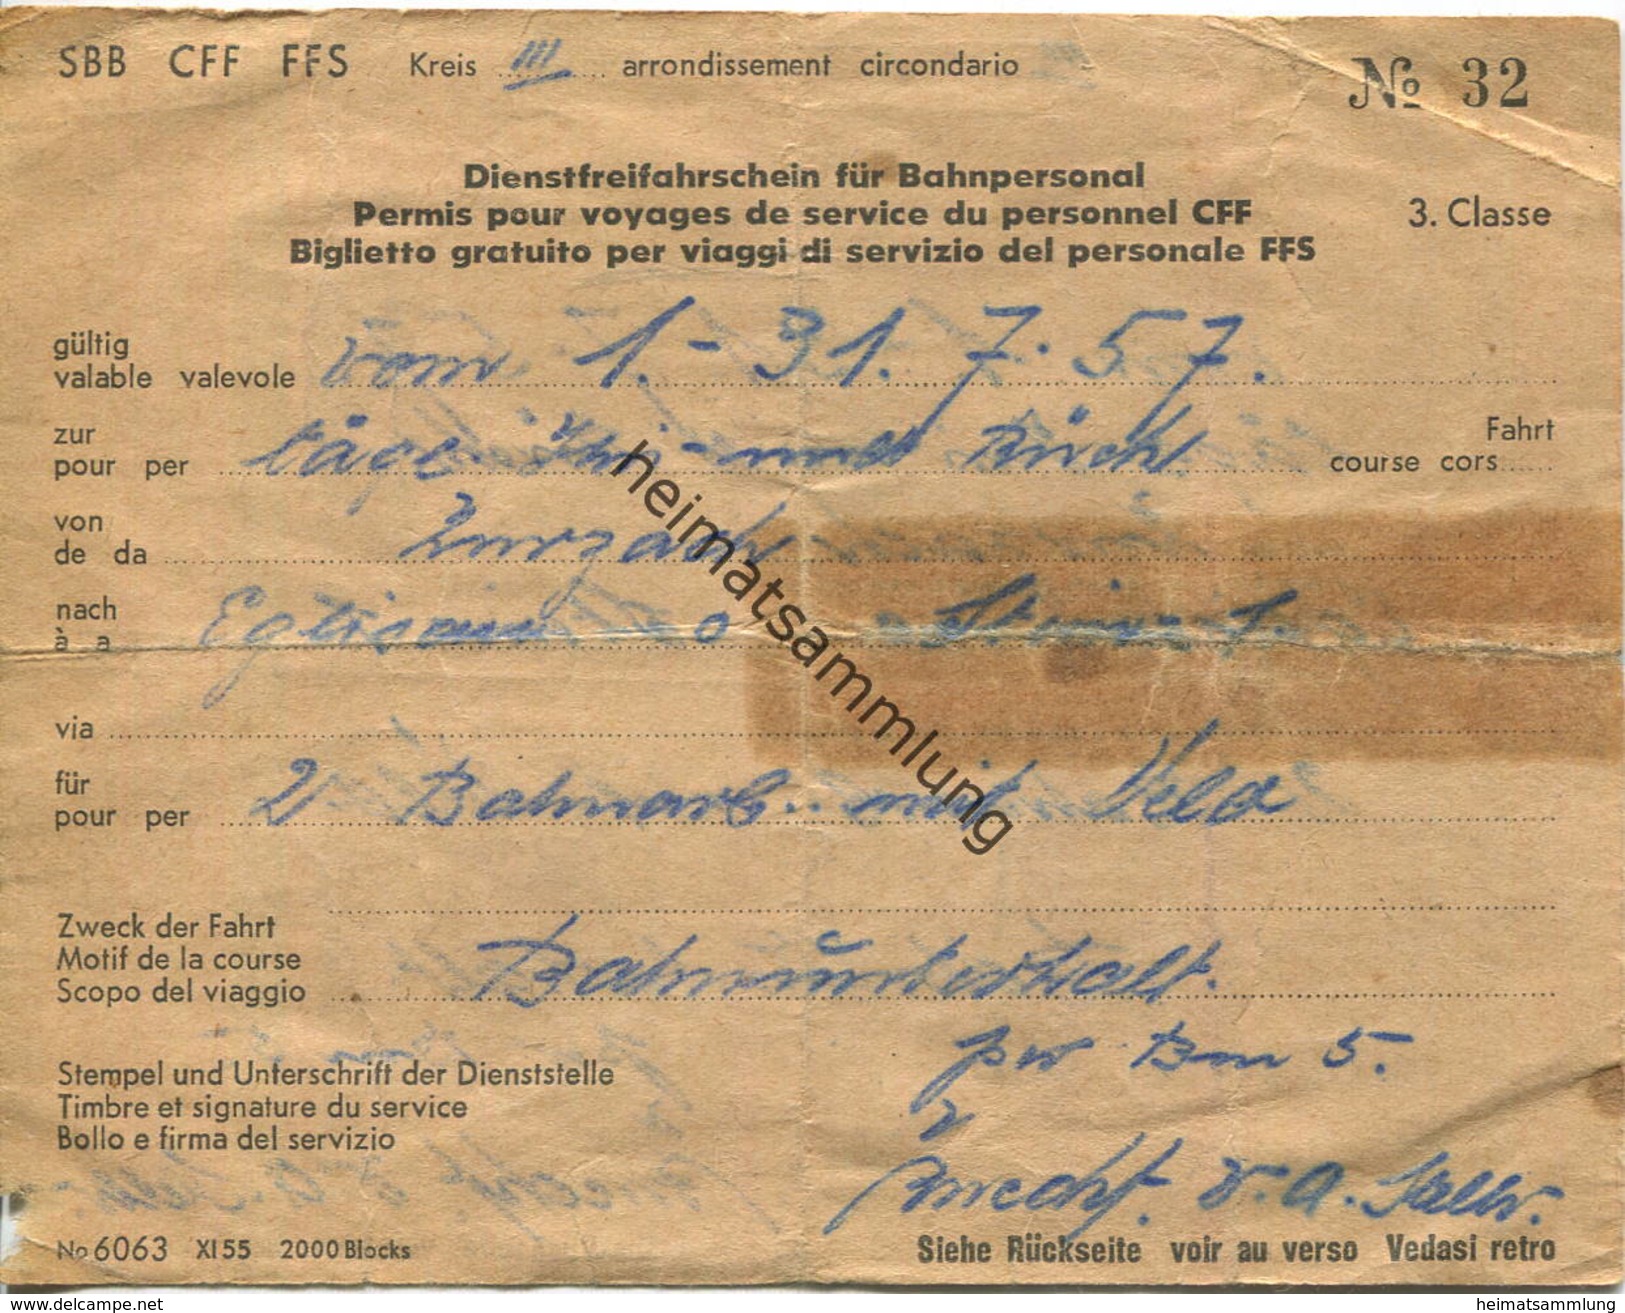 SBB CFF FFS Kreis III arrondissement circondario
№ 32
Dienstfreifahrschein für Bahnpersonal
Permis pour voyages de service du personnel CFF
3. Classe
Biglietto gratuito per viaggi di servizio del personale FFS
gültig
valable valevole vom 1. - 31. 7. 57.
zur
Fahrt
pour per Hin - und Rück
course cors
von
de da Zurzach
nach
à a Eglisau
via
für
pour per 2 Bahnarb. mit Velo
Zweck der Fahrt
Motif de la course
Scopo del viaggio Bahnunterhalt.
Bm 5.
Stempel und Unterschrift der Dienststelle
Timbre et signature du service
Bollo e firma del servizio
No 6063 XI 55 2000 Blocks
Siehe Rückseite voir au verso Vedasi retro
heimatsammlung
www.delcampe.net
heimatsammlung